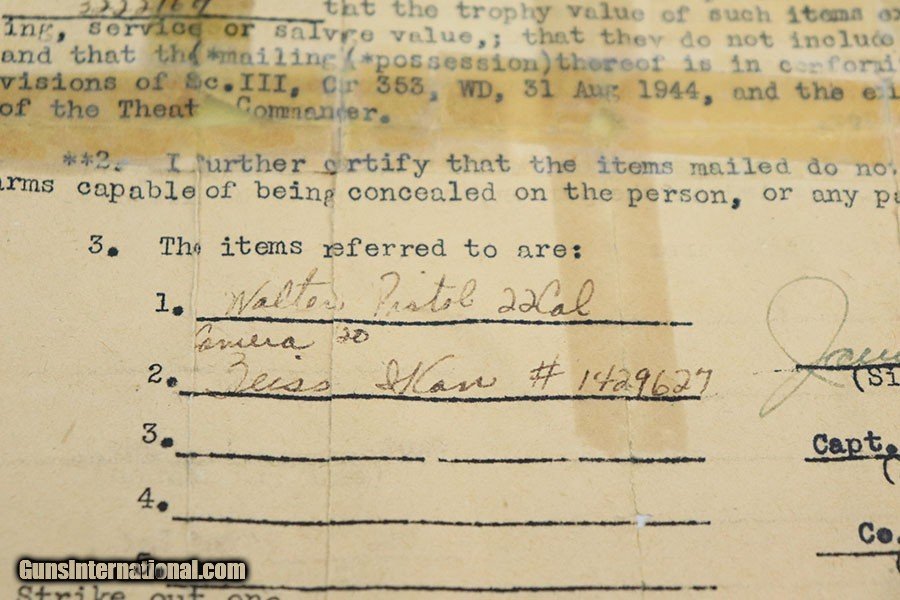 3222167 tht the trophy value of such items ex
ing, service or salvge value,; that they do not include
and that th(*mailing(*possession)thereof is in conformi
visions of Sc.III, Cir 353, WD, 31 Aug 1944, and the exi
of the Theat Commander.
**2. I further certify that the items mailed do not
arms capable of being concealed on the person, or any pa
3. The items referred to are:
1. Walter Pistol 22Cal
Camera 20
2. Zeiss IKan # 1429627
(Si
3.
Capt.
(
4.
Co.
5.
Strike out one
GunsInternational.com